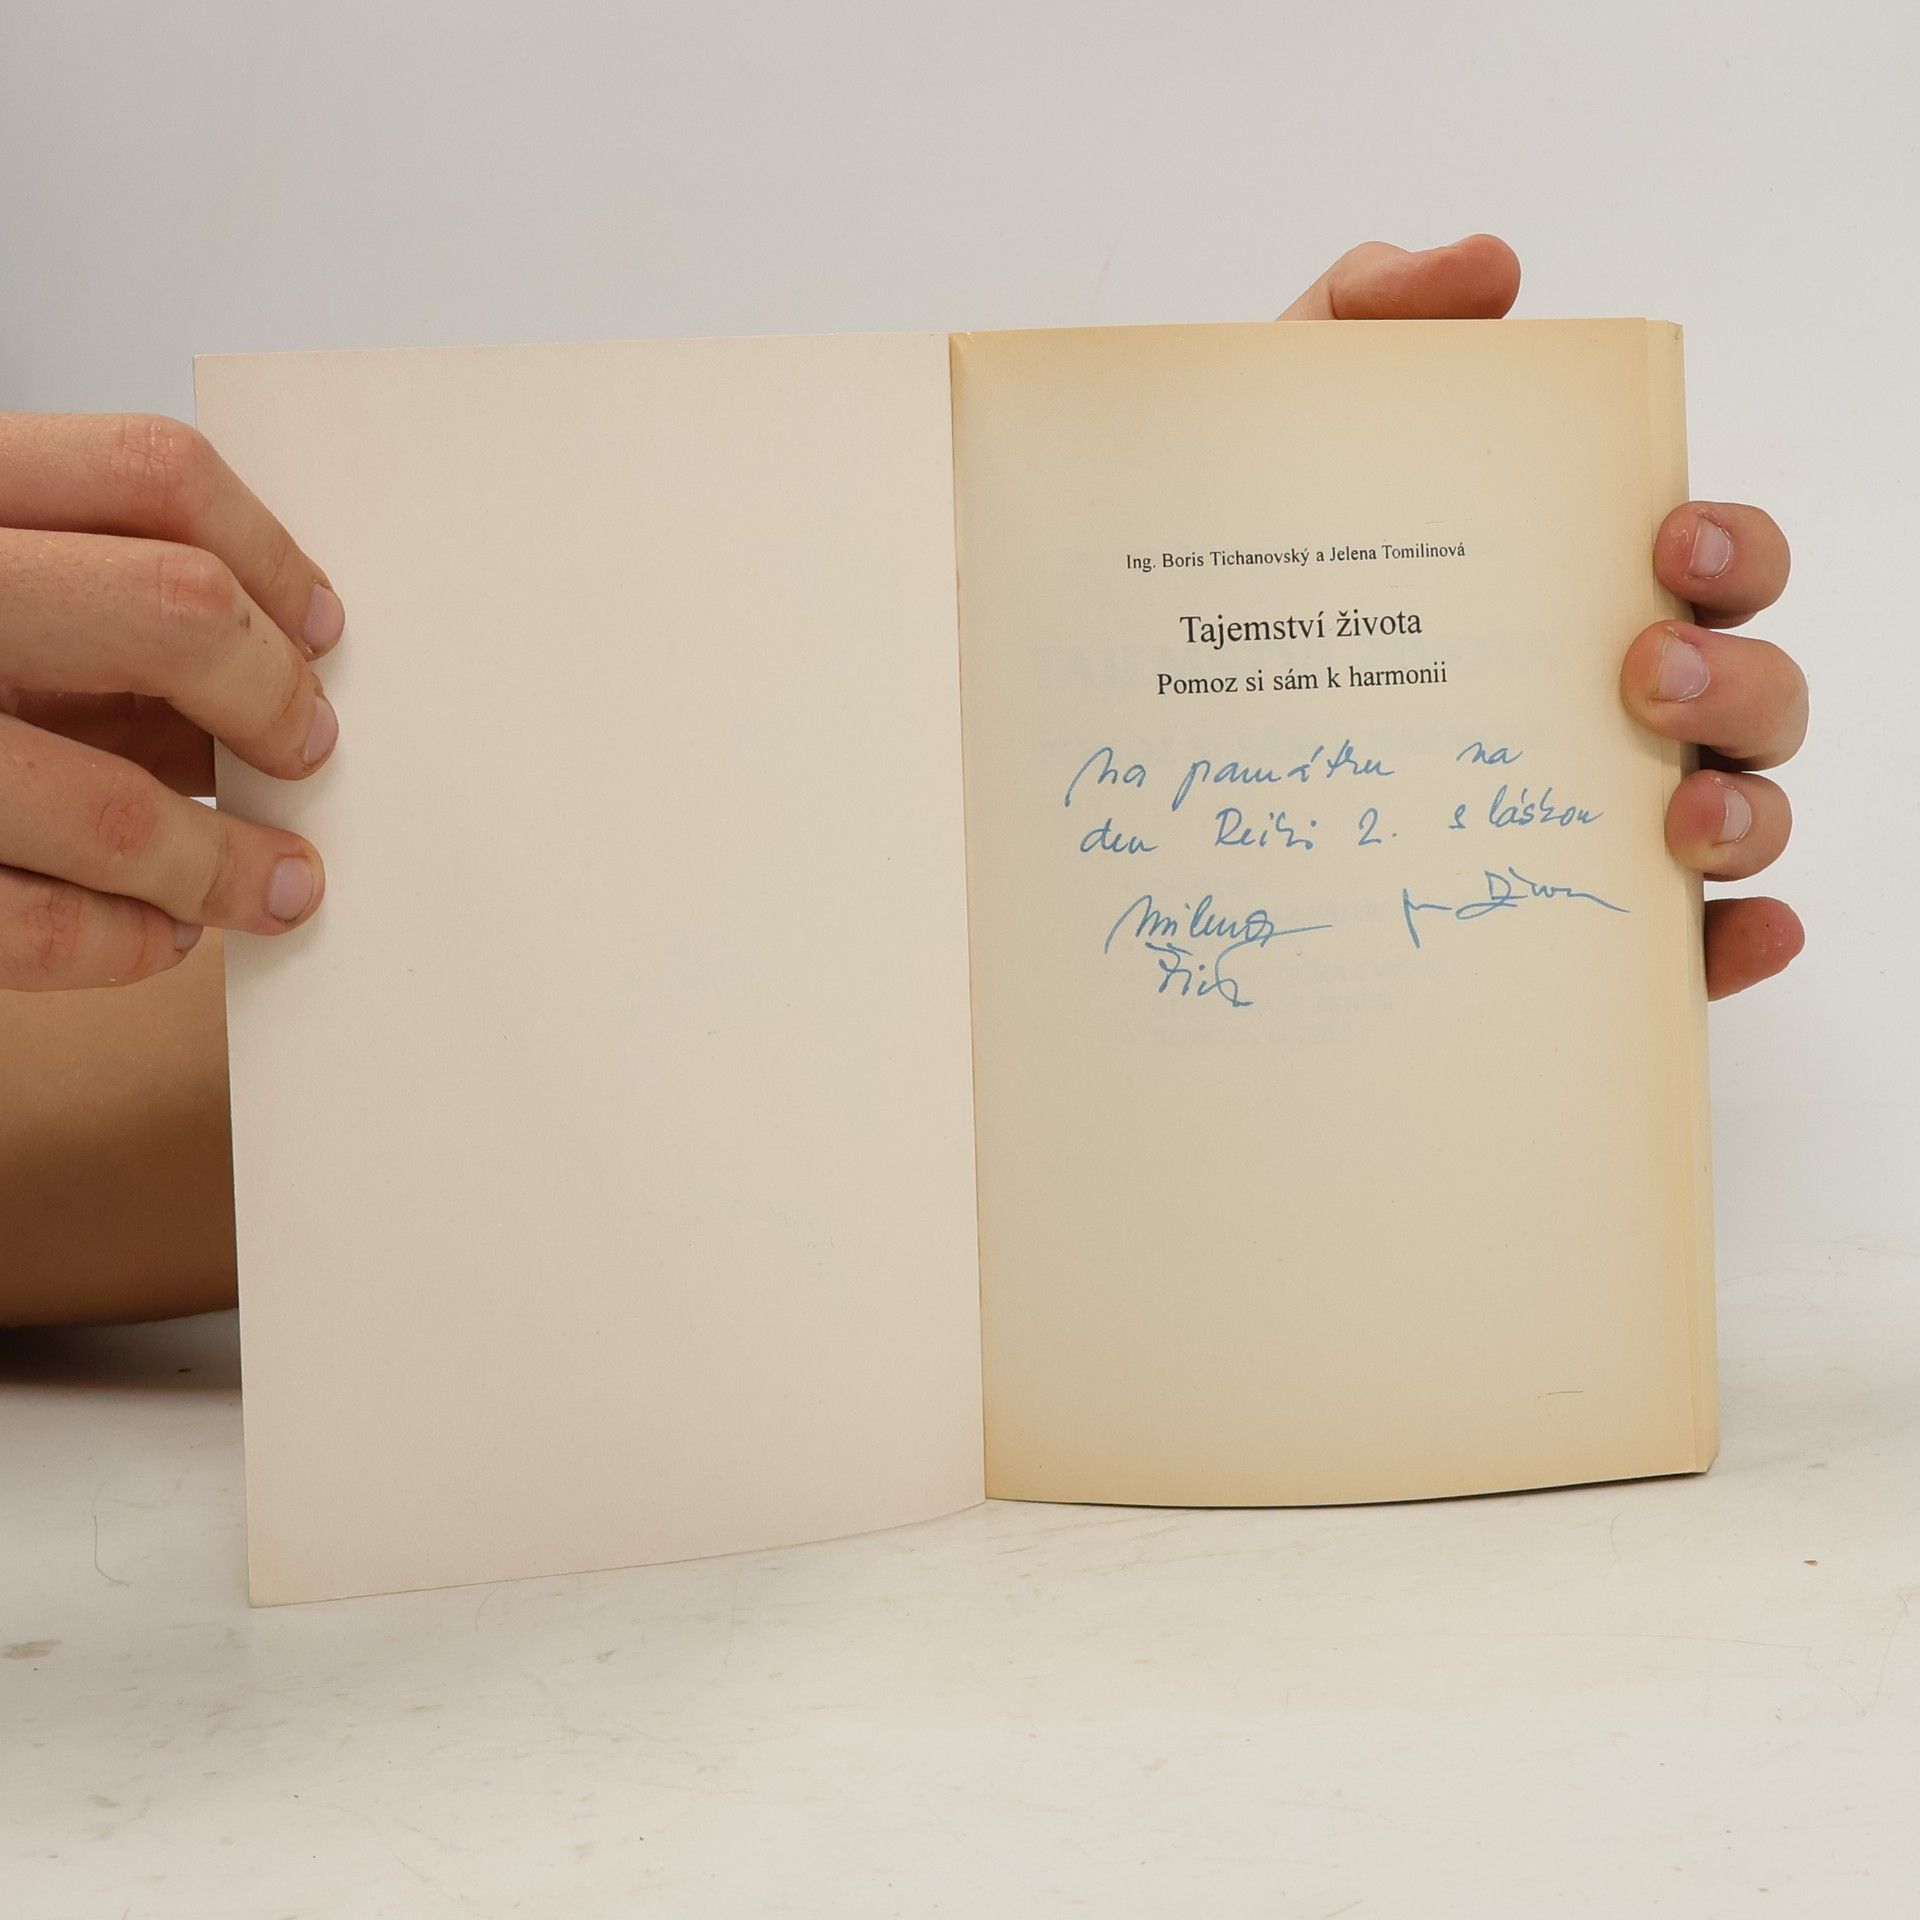 Ing. Boris Tichanovský a Jelena Tomilinová
Tajemství života
Pomoz si sám k harmonii
Na památku na
den Reiki 2. s láskou
Milena